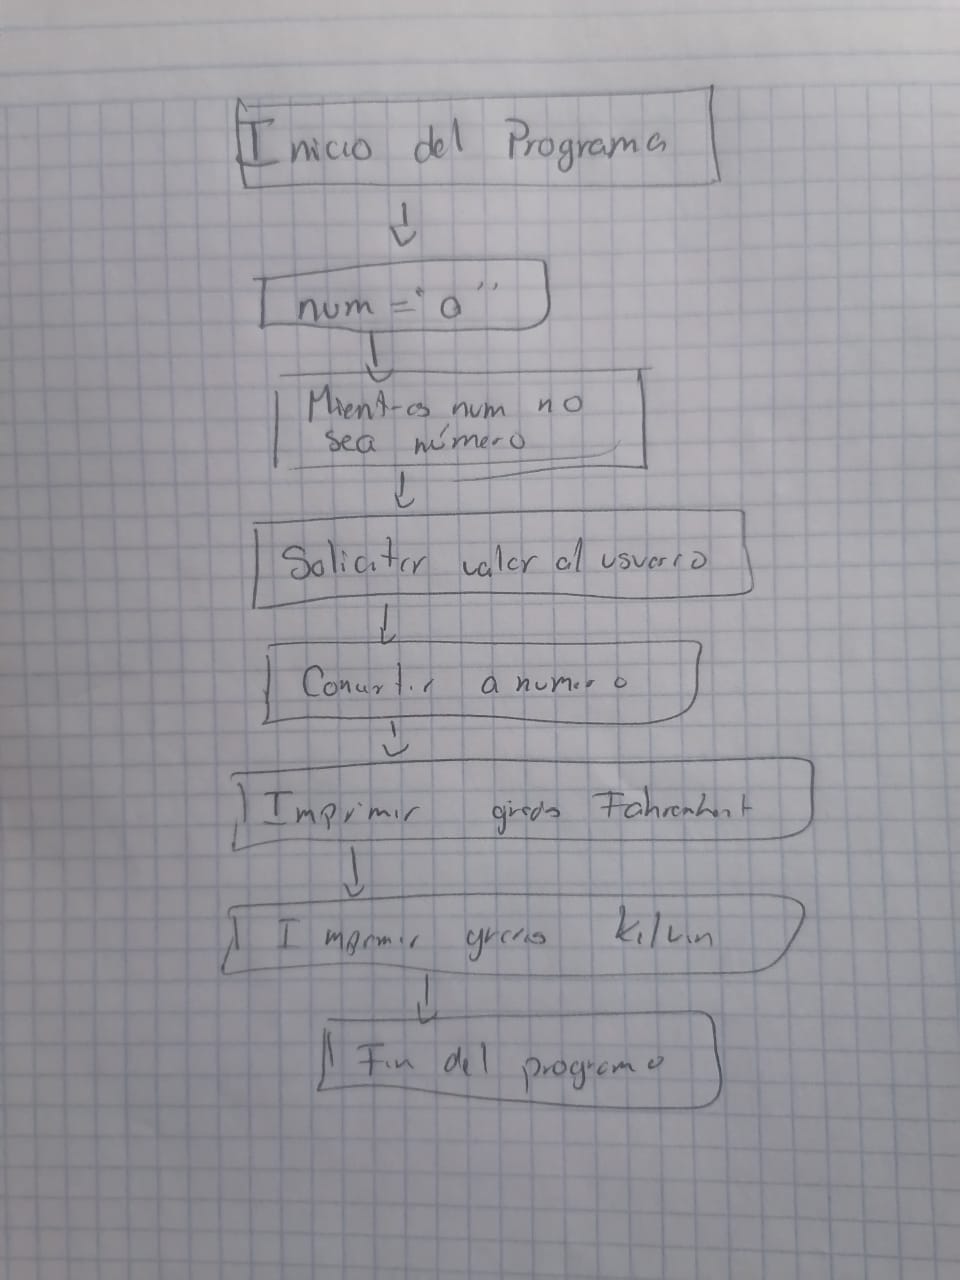 Inicio del Programa
num = "a"
Mientras num no
sea número
Solicitar valor al usuario
Convertir a numero
Imprimir grados Fahrenheit
Imprimir grados Kilvin
Fin del programa